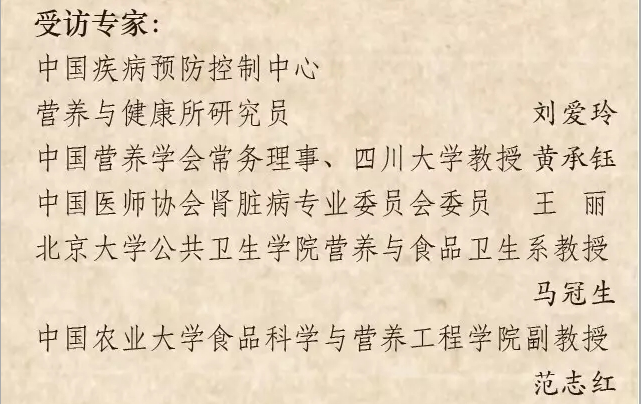 受访专家：
中国疾病预防控制中心
营养与健康所研究员 刘爱玲
中国营养学会常务理事、四川大学教授 黄承钰
中国医师协会肾脏病专业委员会委员 王 丽
北京大学公共卫生学院营养与食品卫生系教授
马冠生
中国农业大学食品科学与营养工程学院副教授
范志红